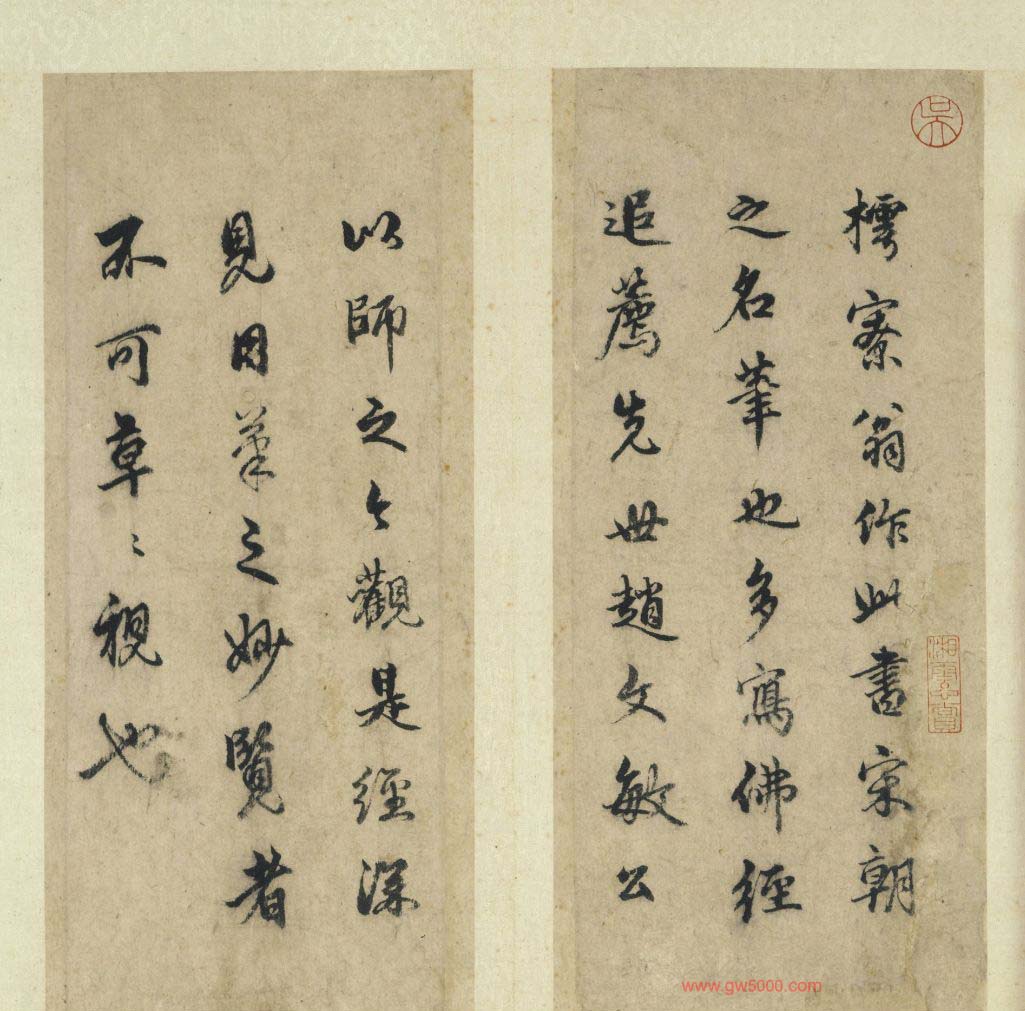 吳
樗寮翁作此書宋朝
之名筆也多寫佛經
追薦先世趙文敏公
以師之今觀是經深
見用筆之妙覽者
不可草〻視也
www.gw5000.com